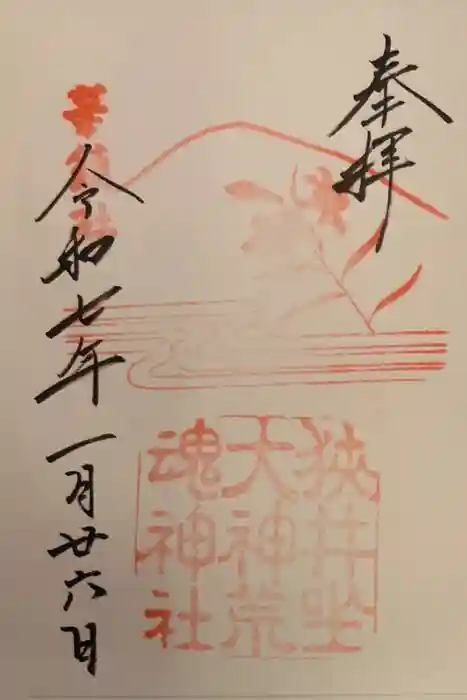 奉拝
狭井坐
大神荒
魂神社
令和七年一月廿六日